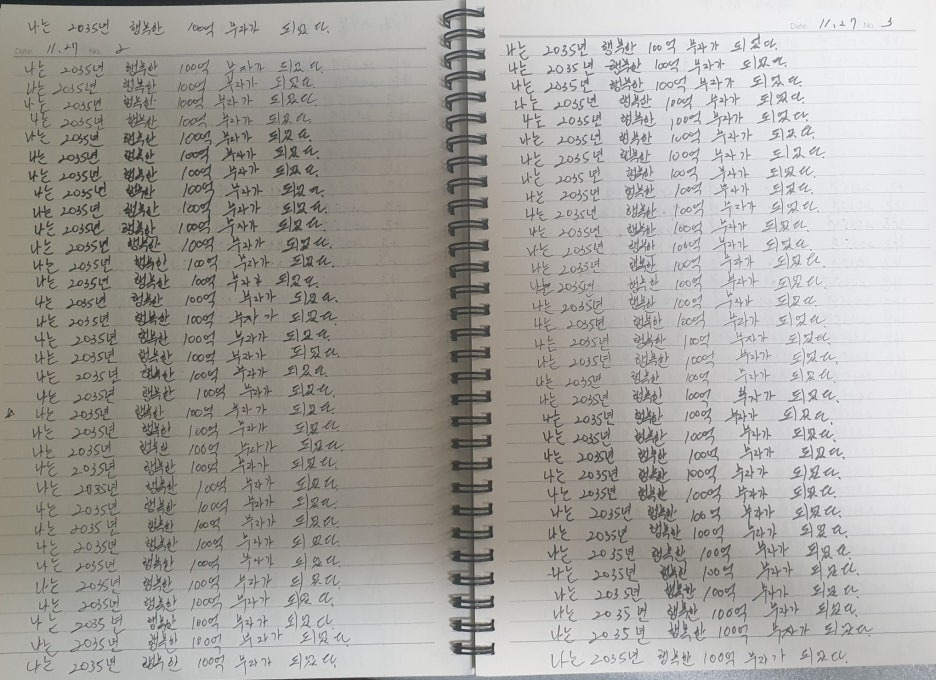 나는 2035년 행복한 100억 부자가 되었다.
Date 11.27 No. 2
나는 2035년 행복한 100억 부자가 되었다.
나는 2035년 행복한 100억 부자가 되었다.
나는 2035년 행복한 100억 부자가 되었다.
나는 2035년 행복한 100억 부자가 되었다.
나는 2035년 행복한 100억 부자가 되었다.
나는 2035년 행복한 100억 부자가 되었다.
나는 2035년 행복한 100억 부자가 되었다.
나는 2035년 행복한 100억 부자가 되었다.
나는 2035년 행복한 100억 부자가 되었다.
나는 2035년 행복한 100억 부자가 되었다.
나는 2035년 행복한 100억 부자가 되었다.
나는 2035년 행복한 100억 부자가 되었다.
나는 2035년 행복한 100억 부자가 되었다.
나는 2035년 행복한 100억 부자가 되었다.
나는 2035년 행복한 100억 부자가 되었다.
나는 2035년 행복한 100억 부자가 되었다.
나는 2035년 행복한 100억 부자가 되었다.
나는 2035년 행복한 100억 부자가 되었다.
나는 2035년 행복한 100억 부자가 되었다.
나는 2035년 행복한 100억 부자가 되었다.
나는 2035년 행복한 100억 부자가 되었다.
나는 2035년 행복한 100억 부자가 되었다.
나는 2035년 행복한 100억 부자가 되었다.
나는 2035년 행복한 100억 부자가 되었다.
나는 2035년 행복한 100억 부자가 되었다.
나는 2035년 행복한 100억 부자가 되었다.
나는 2035년 행복한 100억 부자가 되었다.
나는 2035년 행복한 100억 부자가 되었다.
나는 2035년 행복한 100억 부자가 되었다.
나는 2035년 행복한 100억 부자가 되었다.
나는 2035년 행복한 100억 부자가 되었다.
나는 2035년 행복한 100억 부자가 되었다.
나는 2035년 행복한 100억 부자가 되었다.
Date 11.27 No. 3
나는 2035년 행복한 100억 부자가 되었다.
나는 2035년 행복한 100억 부자가 되었다.
나는 2035년 행복한 100억 부자가 되었다.
나는 2035년 행복한 100억 부자가 되었다.
나는 2035년 행복한 100억 부자가 되었다.
나는 2035년 행복한 100억 부자가 되었다.
나는 2035년 행복한 100억 부자가 되었다.
나는 2035년 행복한 100억 부자가 되었다.
나는 2035년 행복한 100억 부자가 되었다.
나는 2035년 행복한 100억 부자가 되었다.
나는 2035년 행복한 100억 부자가 되었다.
나는 2035년 행복한 100억 부자가 되었다.
나는 2035년 행복한 100억 부자가 되었다.
나는 2035년 행복한 100억 부자가 되었다.
나는 2035년 행복한 100억 부자가 되었다.
나는 2035년 행복한 100억 부자가 되었다.
나는 2035년 행복한 100억 부자가 되었다.
나는 2035년 행복한 100억 부자가 되었다.
나는 2035년 행복한 100억 부자가 되었다.
나는 2035년 행복한 100억 부자가 되었다.
나는 2035년 행복한 100억 부자가 되었다.
나는 2035년 행복한 100억 부자가 되었다.
나는 2035년 행복한 100억 부자가 되었다.
나는 2035년 행복한 100억 부자가 되었다.
나는 2035년 행복한 100억 부자가 되었다.
나는 2035년 행복한 100억 부자가 되었다.
나는 2035년 행복한 100억 부자가 되었다.
나는 2035년 행복한 100억 부자가 되었다.
나는 2035년 행복한 100억 부자가 되었다.
나는 2035년 행복한 100억 부자가 되었다.
나는 2035년 행복한 100억 부자가 되었다.
나는 2035년 행복한 100억 부자가 되었다.
나는 2035년 행복한 100억 부자가 되었다.